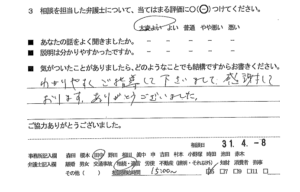 3 相談を担当した弁護士について、当てはまる評価に○(⊖)つけてください。
大変よい よい 普通 やや悪い 悪い
■ あなたの話をよく聞きましたか。
■ 説明は分かりやすかったですか。
■ 気がついたことがありましたら、どのようなことでも結構ですからお書きください。
わかりやすく ご指導して下さいまして、感謝して
おります。ありがとうございました。
ご協力ありがとうございました。
相談日 31.4.-8
事務所記入欄
弁護士記入欄 離婚 男女 交通事故 相続・遺言 労働 不動産
その他( )